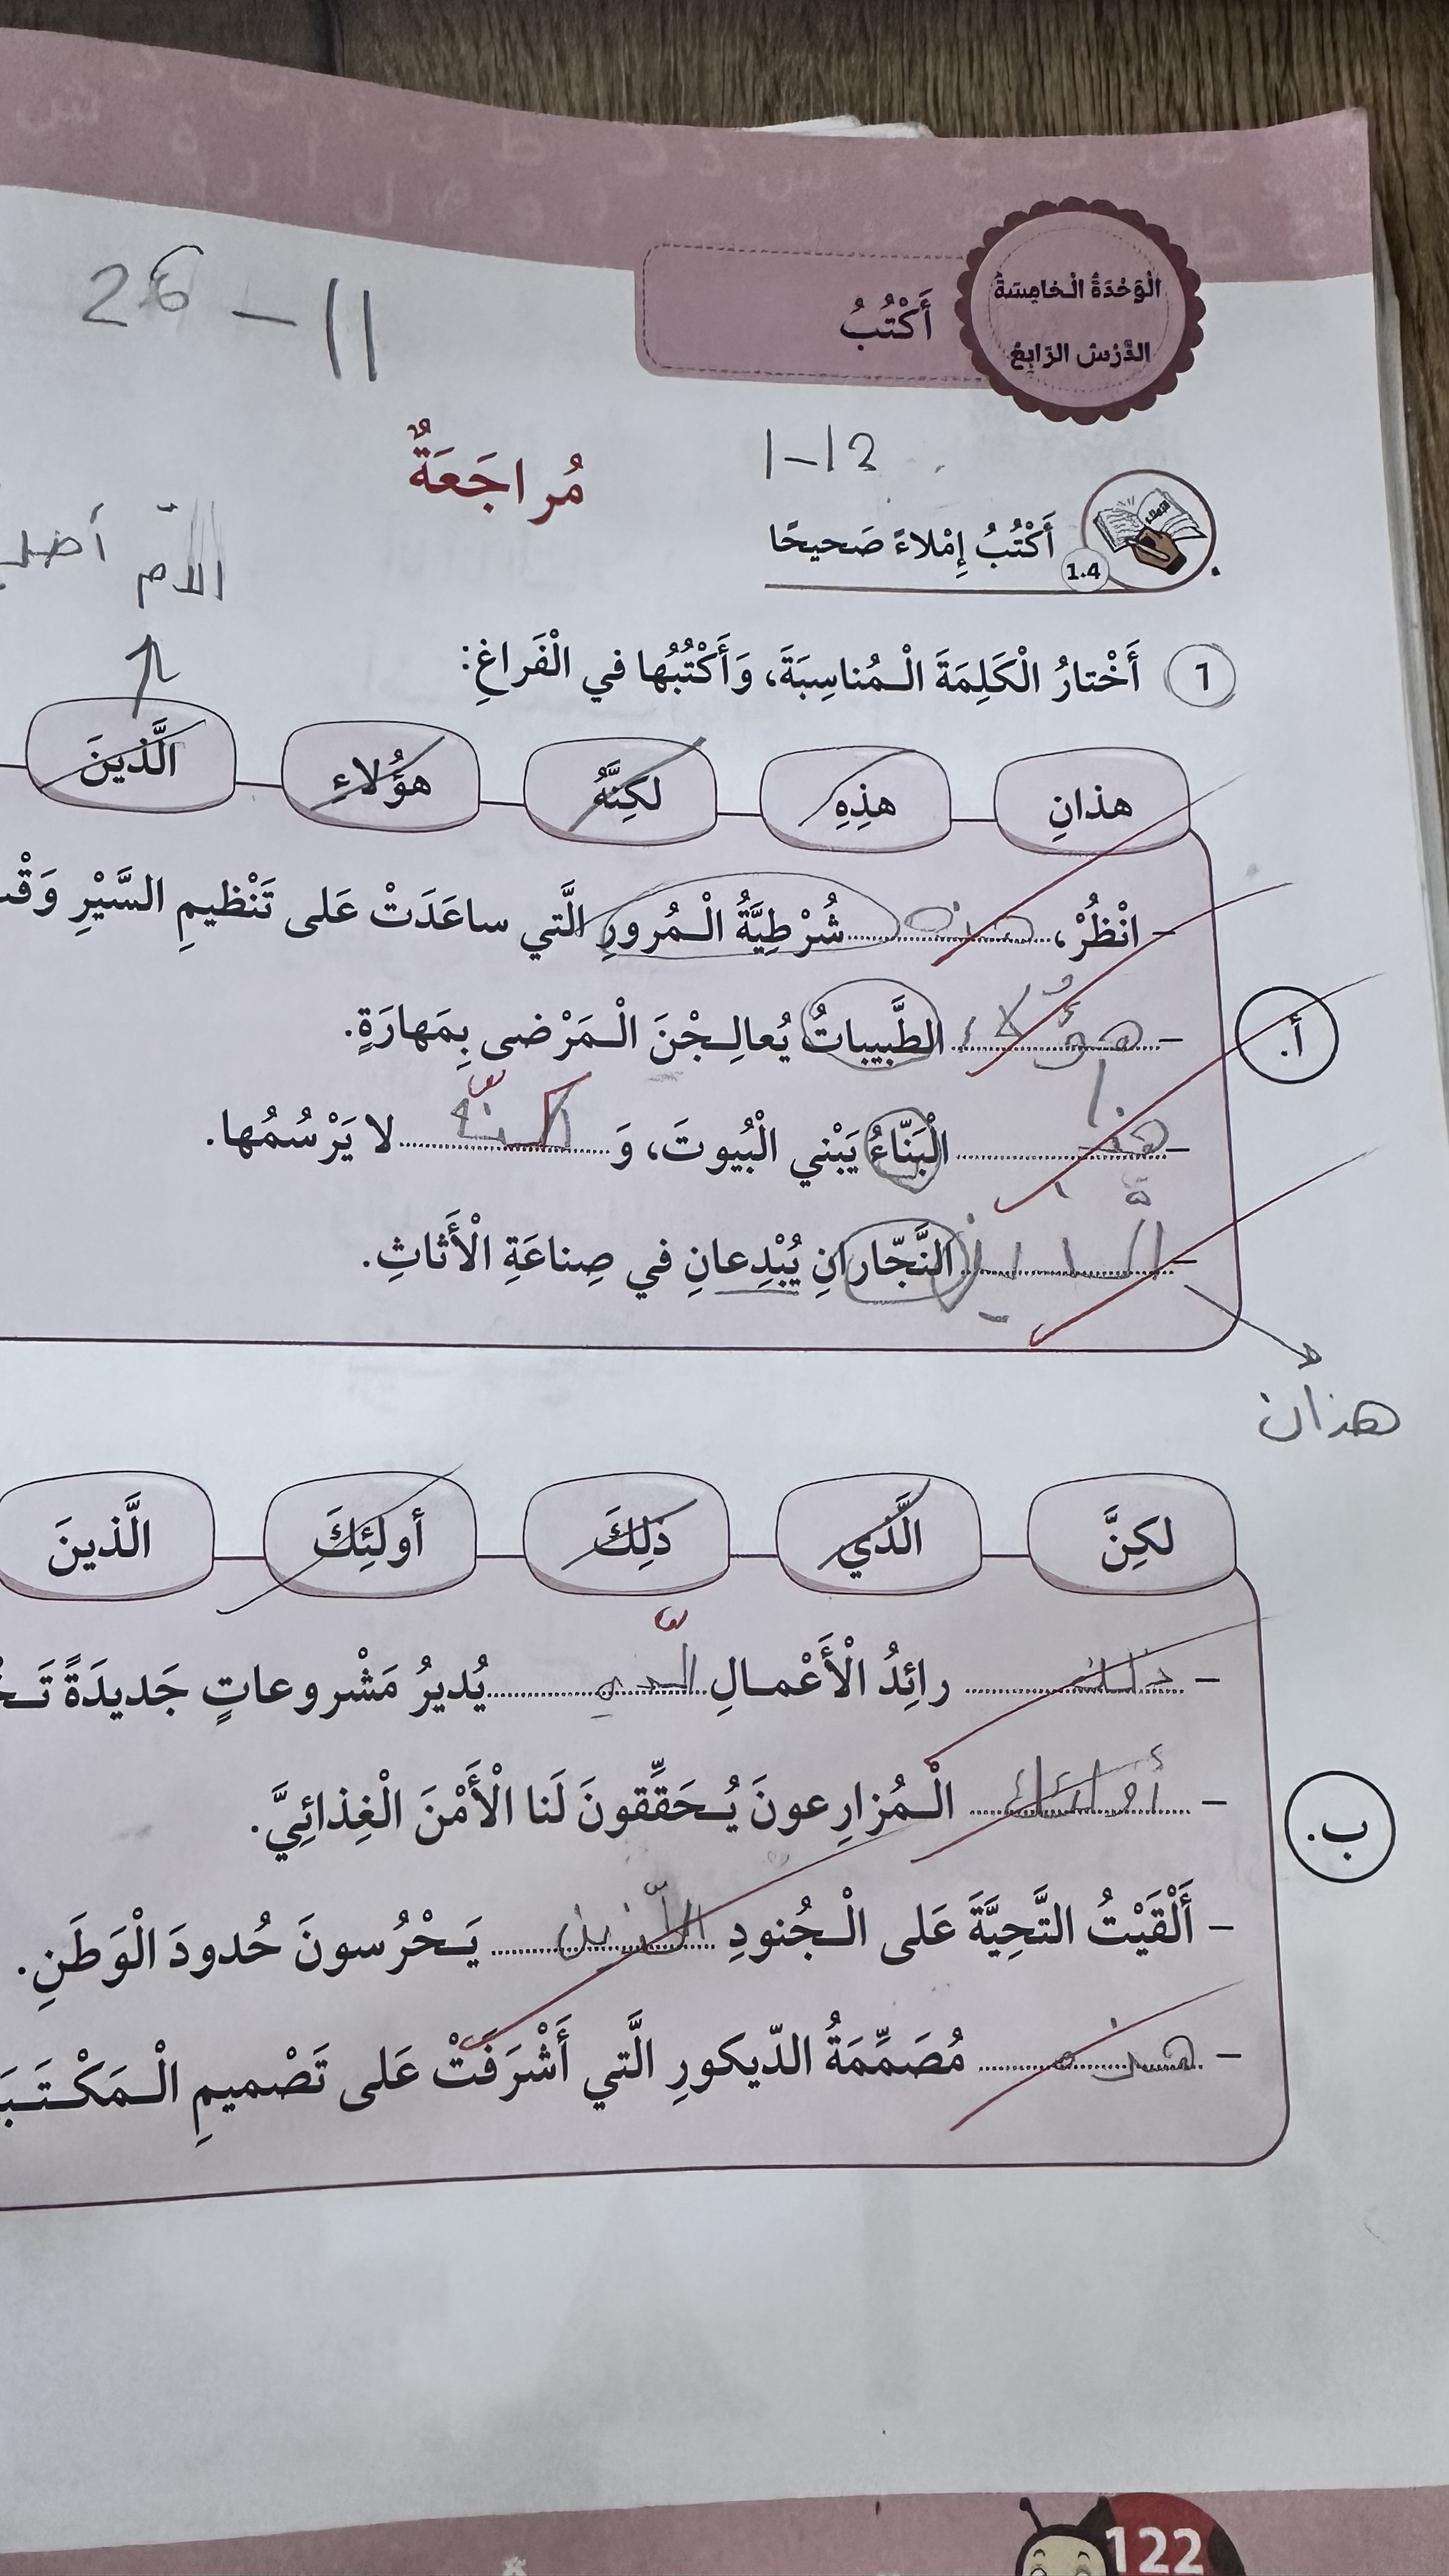 الْوَحْدَةُ الْخامِسَةُ
الدَّرْسُ الرّابِعُ
أَكْتُبُ
26 - 11
1-12
مُراجَعَةٌ
أَكْتُبُ إِمْلاءً صَحيحًا
1.4
1 أَخْتارُ الْكَلِمَةَ الْمُناسِبَةَ، وَأَكْتُبُها في الْفَراغِ:
هذانِ هذِهِ لكِنَّهُ هؤُلاءِ الَّذينَ
أ.
- انْظُرْ، هذه شُرْطِيَّةُ الْمُرورِ الَّتي ساعَدَتْ عَلى تَنْظيمِ السَّيْرِ
- هؤُلاء الطَّبيباتُ يُعالِجْنَ الْمَرْضى بِمَهارَةٍ.
- هذا الْبَنّاءُ يَبْني الْبُيوتَ، وَ لكنّهُ لا يَرْسُمُها.
- النَّجّارانِ يُبْدِعانِ في صِناعَةِ الْأَثاثِ.
هذان
لكِنَّ الَّذي ذلِكَ أولئِكَ الَّذينَ
ب.
- ذلك رائِدُ الْأَعْمالِ الذي يُديرُ مَشْروعاتٍ جَديدَةً
- أولئك الْمُزارِعونَ يُحَقِّقونَ لَنا الْأَمْنَ الْغِذائِيَّ.
- أَلْقَيْتُ التَّحِيَّةَ عَلى الْجُنودِ الّذين يَحْرُسونَ حُدودَ الْوَطَنِ.
- هذه مُصَمِّمَةُ الدّيكورِ الَّتي أَشْرَفَتْ عَلى تَصْميمِ
122